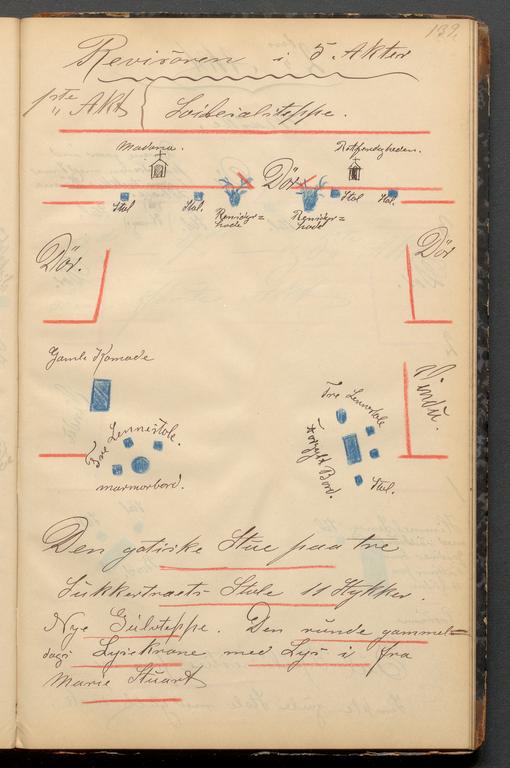 139.
Revisoren i 5 Akter
1ste Akt
Socialsteppe.
Madona.
Dør.
Stol
Stol.
Rensdyr=
hode
Rensdyr=
hodet
Stol
Stol.
Dør.
Dør
Gamle Komode
Vindu.
Tre Lennestole.
marmorbord.
Tre Lennestole
Forgylt Bord.
Stol.
Den gotiske Stue paa tre
Sukkertræets- Stole 11 Stykker.
Nye Gulvteppe. Den runde gammel=
dags Lysekrone med Lys i fra
Marie Stuart